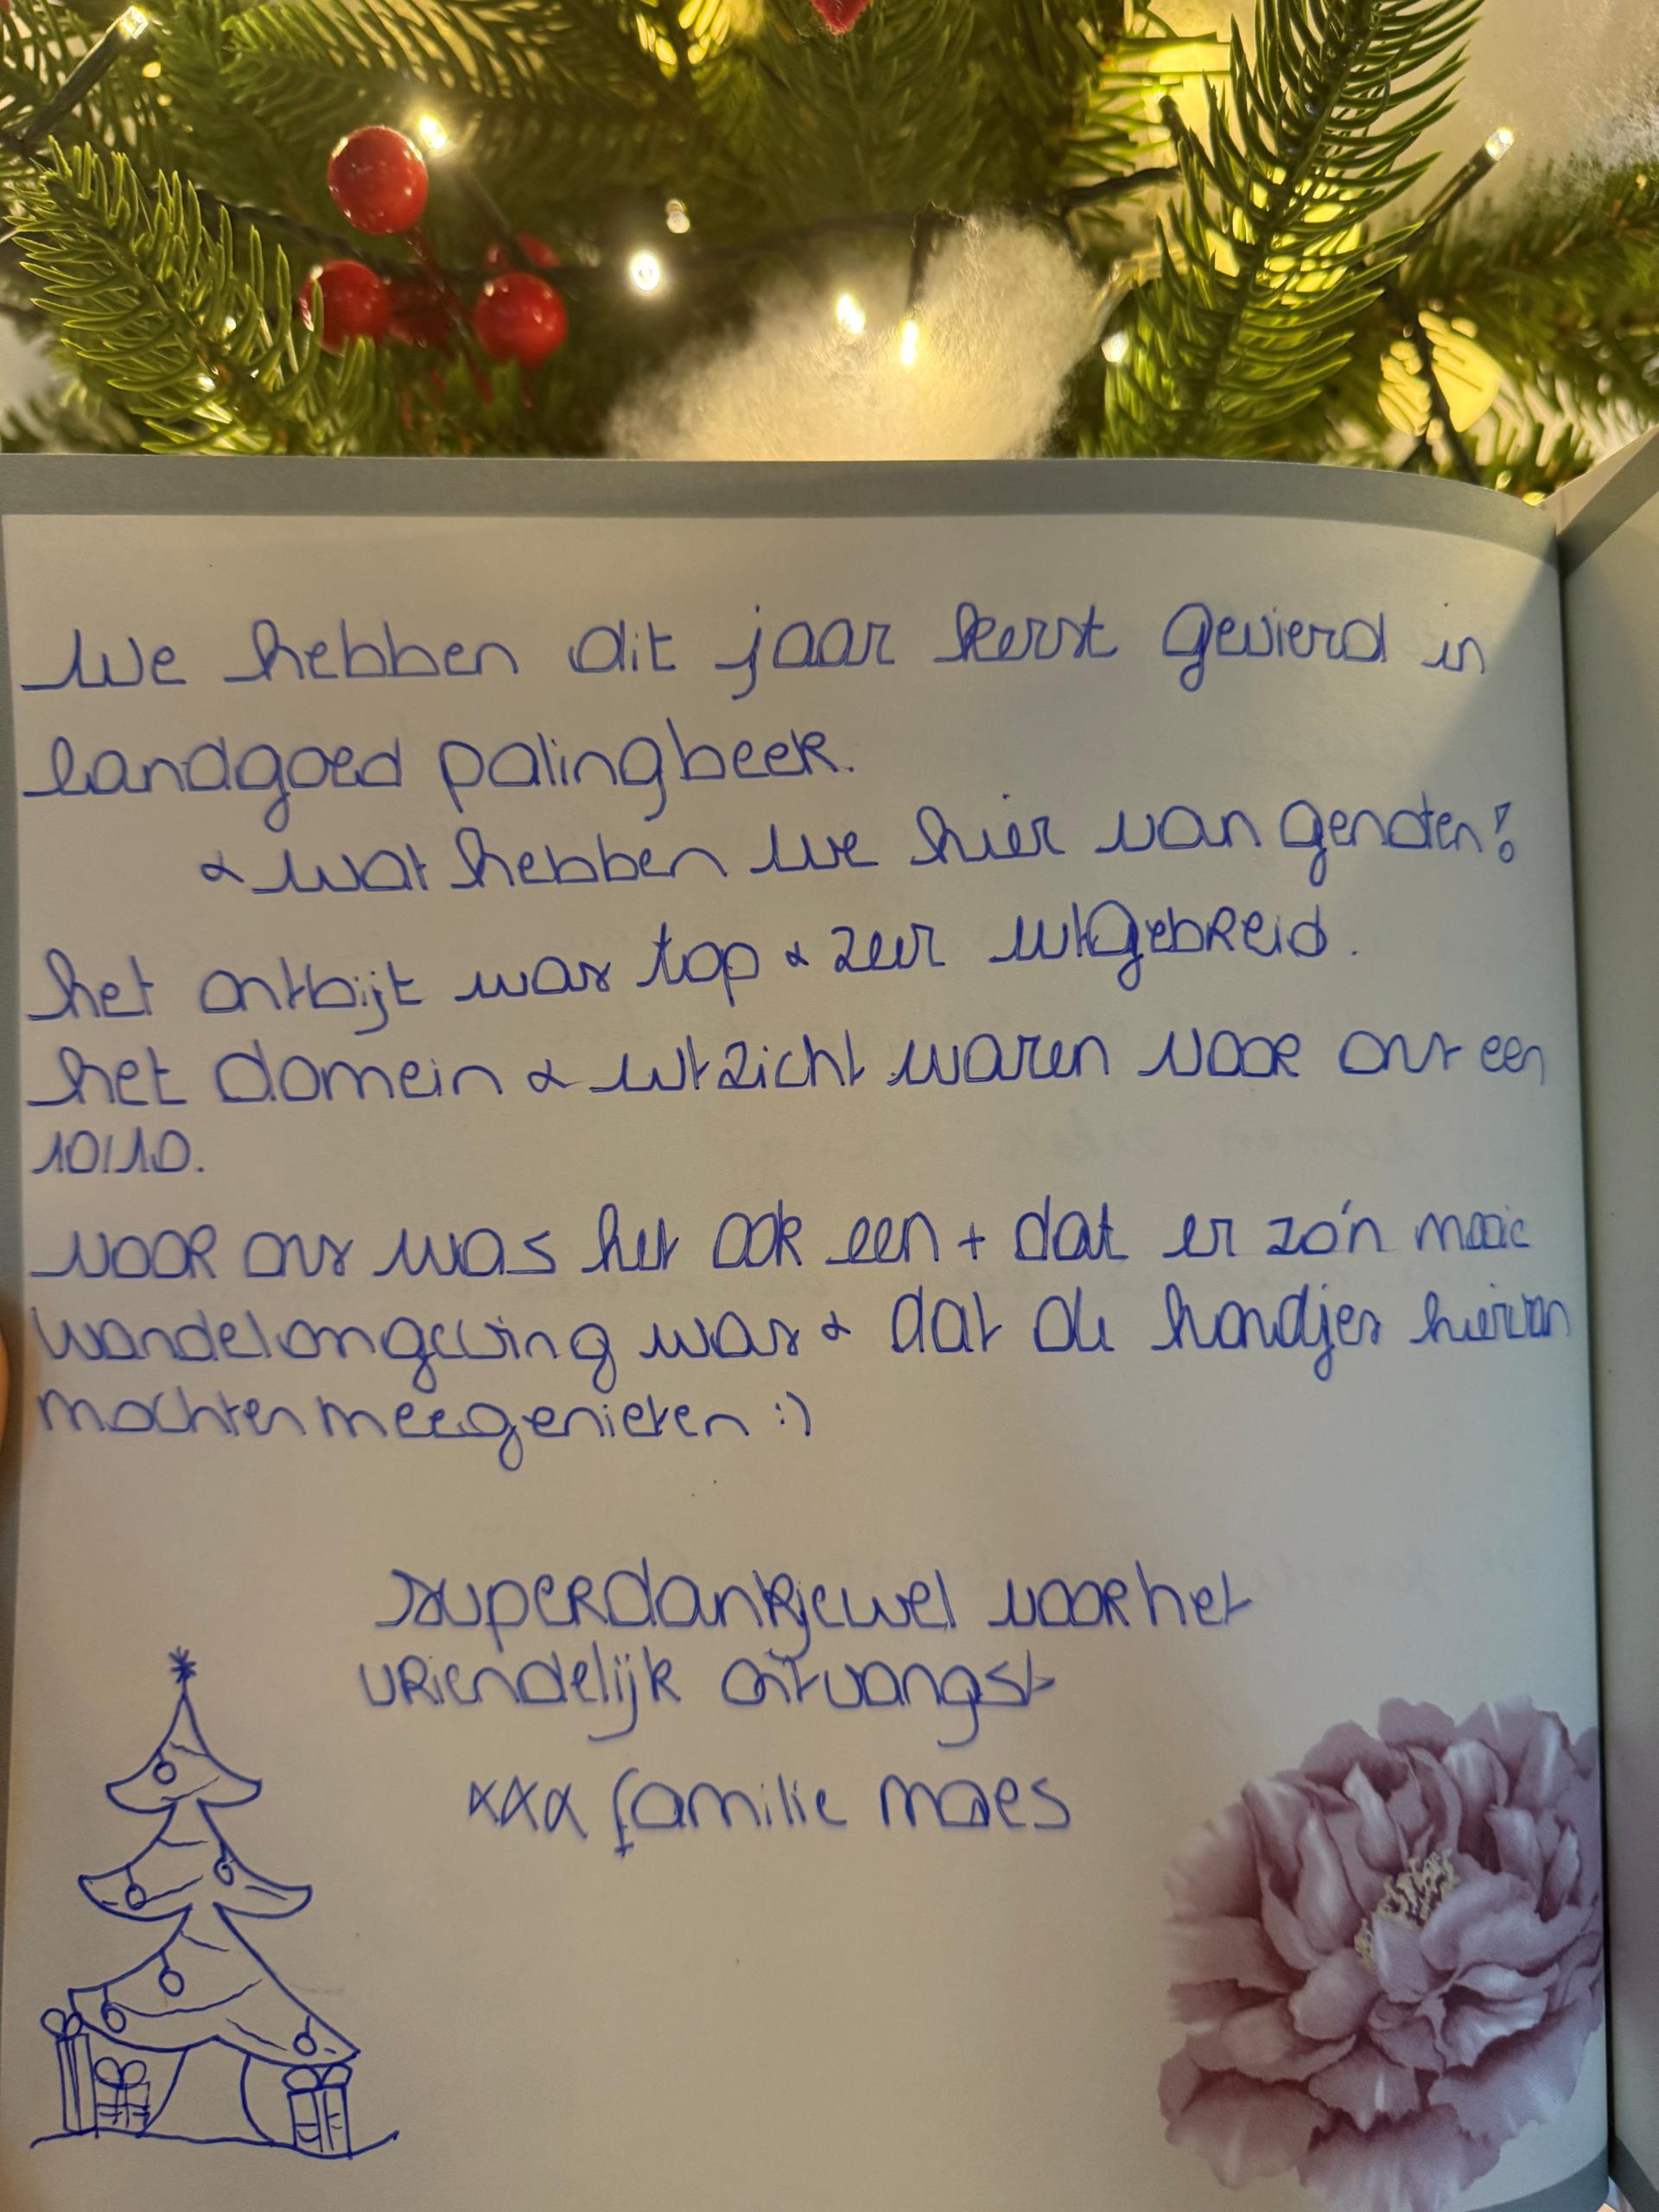 We hebben dit jaar kerst gevierd in
landgoed palingbeek.
& wat hebben we hier van genoten!
het ontbijt was top & zeer uitgebreid.
het domein & uitzicht waren voor ons een
10/10.
voor ons was het ook een + dat er zo'n mooie
wandelomgeving was & dat de hondjes hiervan
mochten meegenieten :)
superdankjewel voor het
vriendelijk ontvangst
xxx familie maes